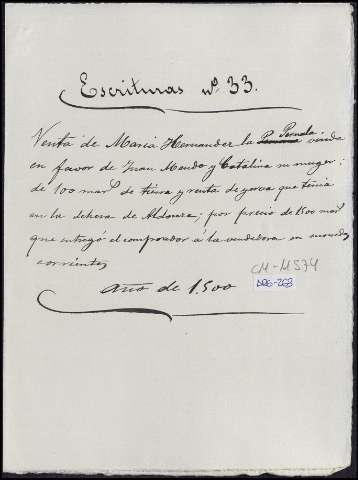 Escrituras nº 33.
Venta de Maria Hernandez la Pernala. viuda
en favor de Juan Mendo y Catalina su muger:
de 100 mars de tierra y renta de yerva que tenia
en la dehesa de Aldonza; por precio de 1500 mars
que entregó el comprador á la vendedora en monedas
corrientes
año de 1.500
CM-M574